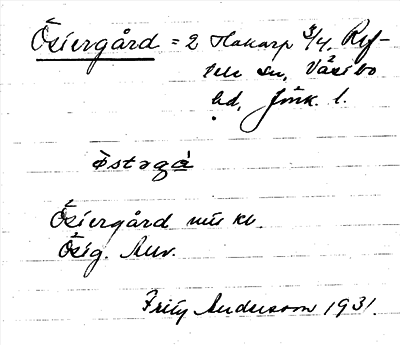 Östergård = 2 Hakarp 3/4, Ref-
tele sn, Västbo
hd, Jönk. l.
östəgɑ̀
Östergård
Östg.
Fritz Andersson 1931.